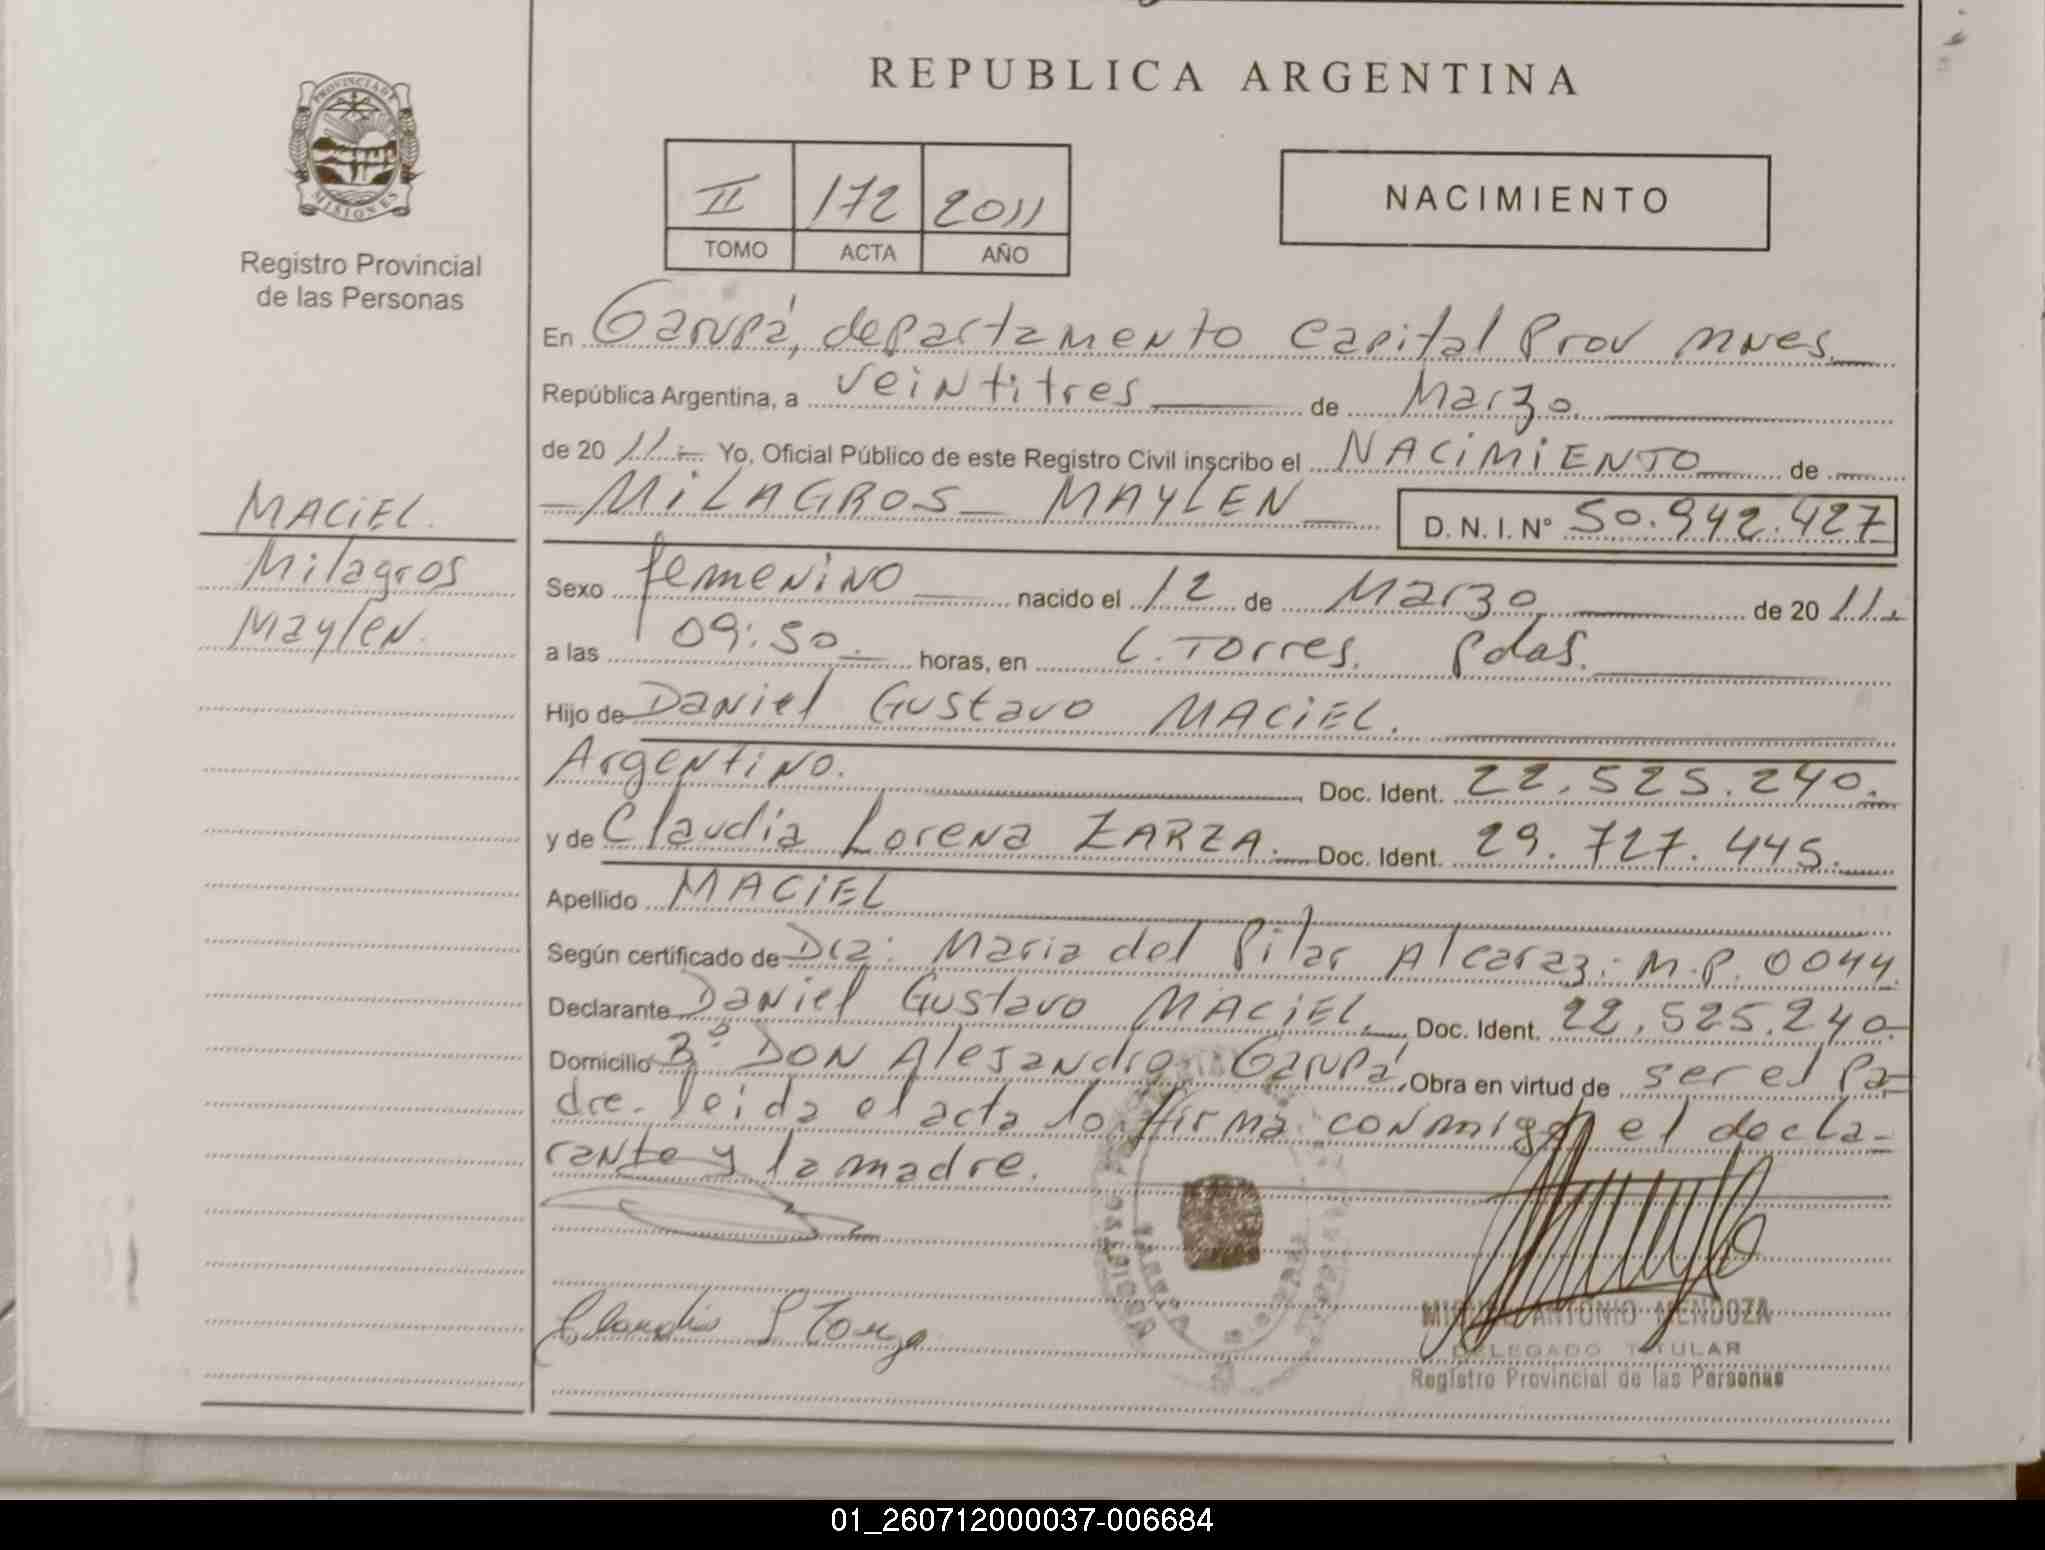 REPUBLICA ARGENTINA
PROVINCIA DE
MISIONES
Registro Provincial
de las Personas
II 172 2011
TOMO ACTA AÑO
NACIMIENTO
En Garupá, departamento Capital Prov Mnes.
República Argentina, a veintitres de Marzo
de 2011.- Yo, Oficial Público de este Registro Civil inscribo el NACIMIENTO de
MILAGROS MAYLEN D. N. I. Nº 50.942.427
MACIEL.
Milagros
Maylen.
Sexo femenino nacido el 12 de Marzo de 2011.-
a las 09:50. horas, en L. Torres. Pdas.
Hijo de Daniel Gustavo MACIEL.
Argentino. Doc. Ident. 22.525.240.
y de Claudia Lorena ZARZA. Doc. Ident. 29.727.445.
Apellido MACIEL
Según certificado de Dra: Maria del Pilar Alcaraz: M.P. 0044.
Declarante Daniel Gustavo MACIEL, Doc. Ident. 22.525.240
Domicilio Bº DON Alesandro Garupá, Obra en virtud de ser el Pa-
dre. leida el acta lo firma conmigo el decla-
rante y la madre.
Claudia L Zarza
MIGUEL ANTONIO MENDOZA
DELEGADO TITULAR
Registro Provincial de las Personas
01_260712000037-006684